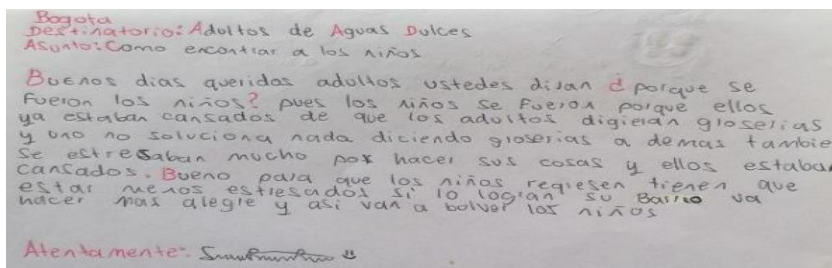 Bogota
Destinatorio: Adultos de Aguas Dulces
Asunto: Como encontrar a los niños
Buenos dias queridos adultos ustedes diran ¿porque se
fueron los niños? pues los niños se fueron porque ellos
ya estaban cansados de que los adultos digieran groserias
y uno no soluciona nada diciendo groserias a demas tambie
se estresaban mucho por hacer sus cosas y ellos estaban
cansados. Bueno para que los niños regresen tienen que
estar menos estresados si lo logran su Barrio va
hacer mas alegre y asi van a bolver los niños
Atentamente: